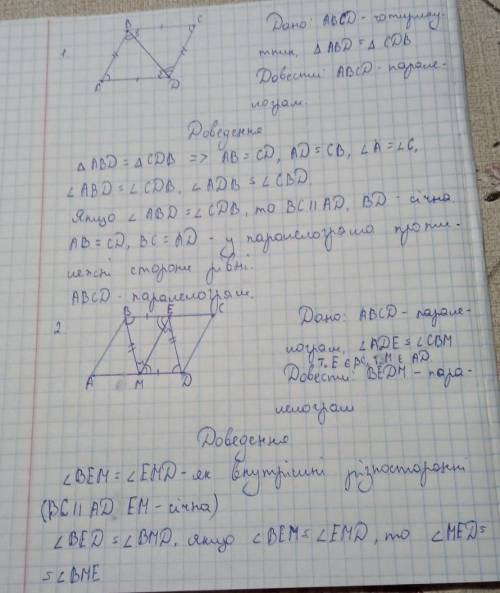 1
B
C
A
D
Дано: ABCD - чотирику-
тник, △ABD = △CDB
Довести: ABCD - парале-
лограм.
Доведення
△ABD = △CDB => AB = CD, AD = CB, ∠A = ∠C,
∠ABD = ∠CDB, ∠ADB = ∠CBD.
Якщо ∠ABD = ∠CDB, то BC || AD, BD - січна
AB = CD, BC = AD - у паралелограма проти-
лежні сторони рівні.
ABCD - паралелограм.
2.
B
E
C
A
M
D
Дано: ABCD - парале-
лограм, ∠ADE = ∠CBM
т. E ∈ BC, т. M ∈ AD
Довести: BEDM - пара-
лелограм
Доведення
∠BEM = ∠EMD - як внутрішні різносторонні
(BC || AD EM - січна)
∠BED = ∠BMD, якщо ∠BEM = ∠EMD, то ∠MED =
= ∠BME